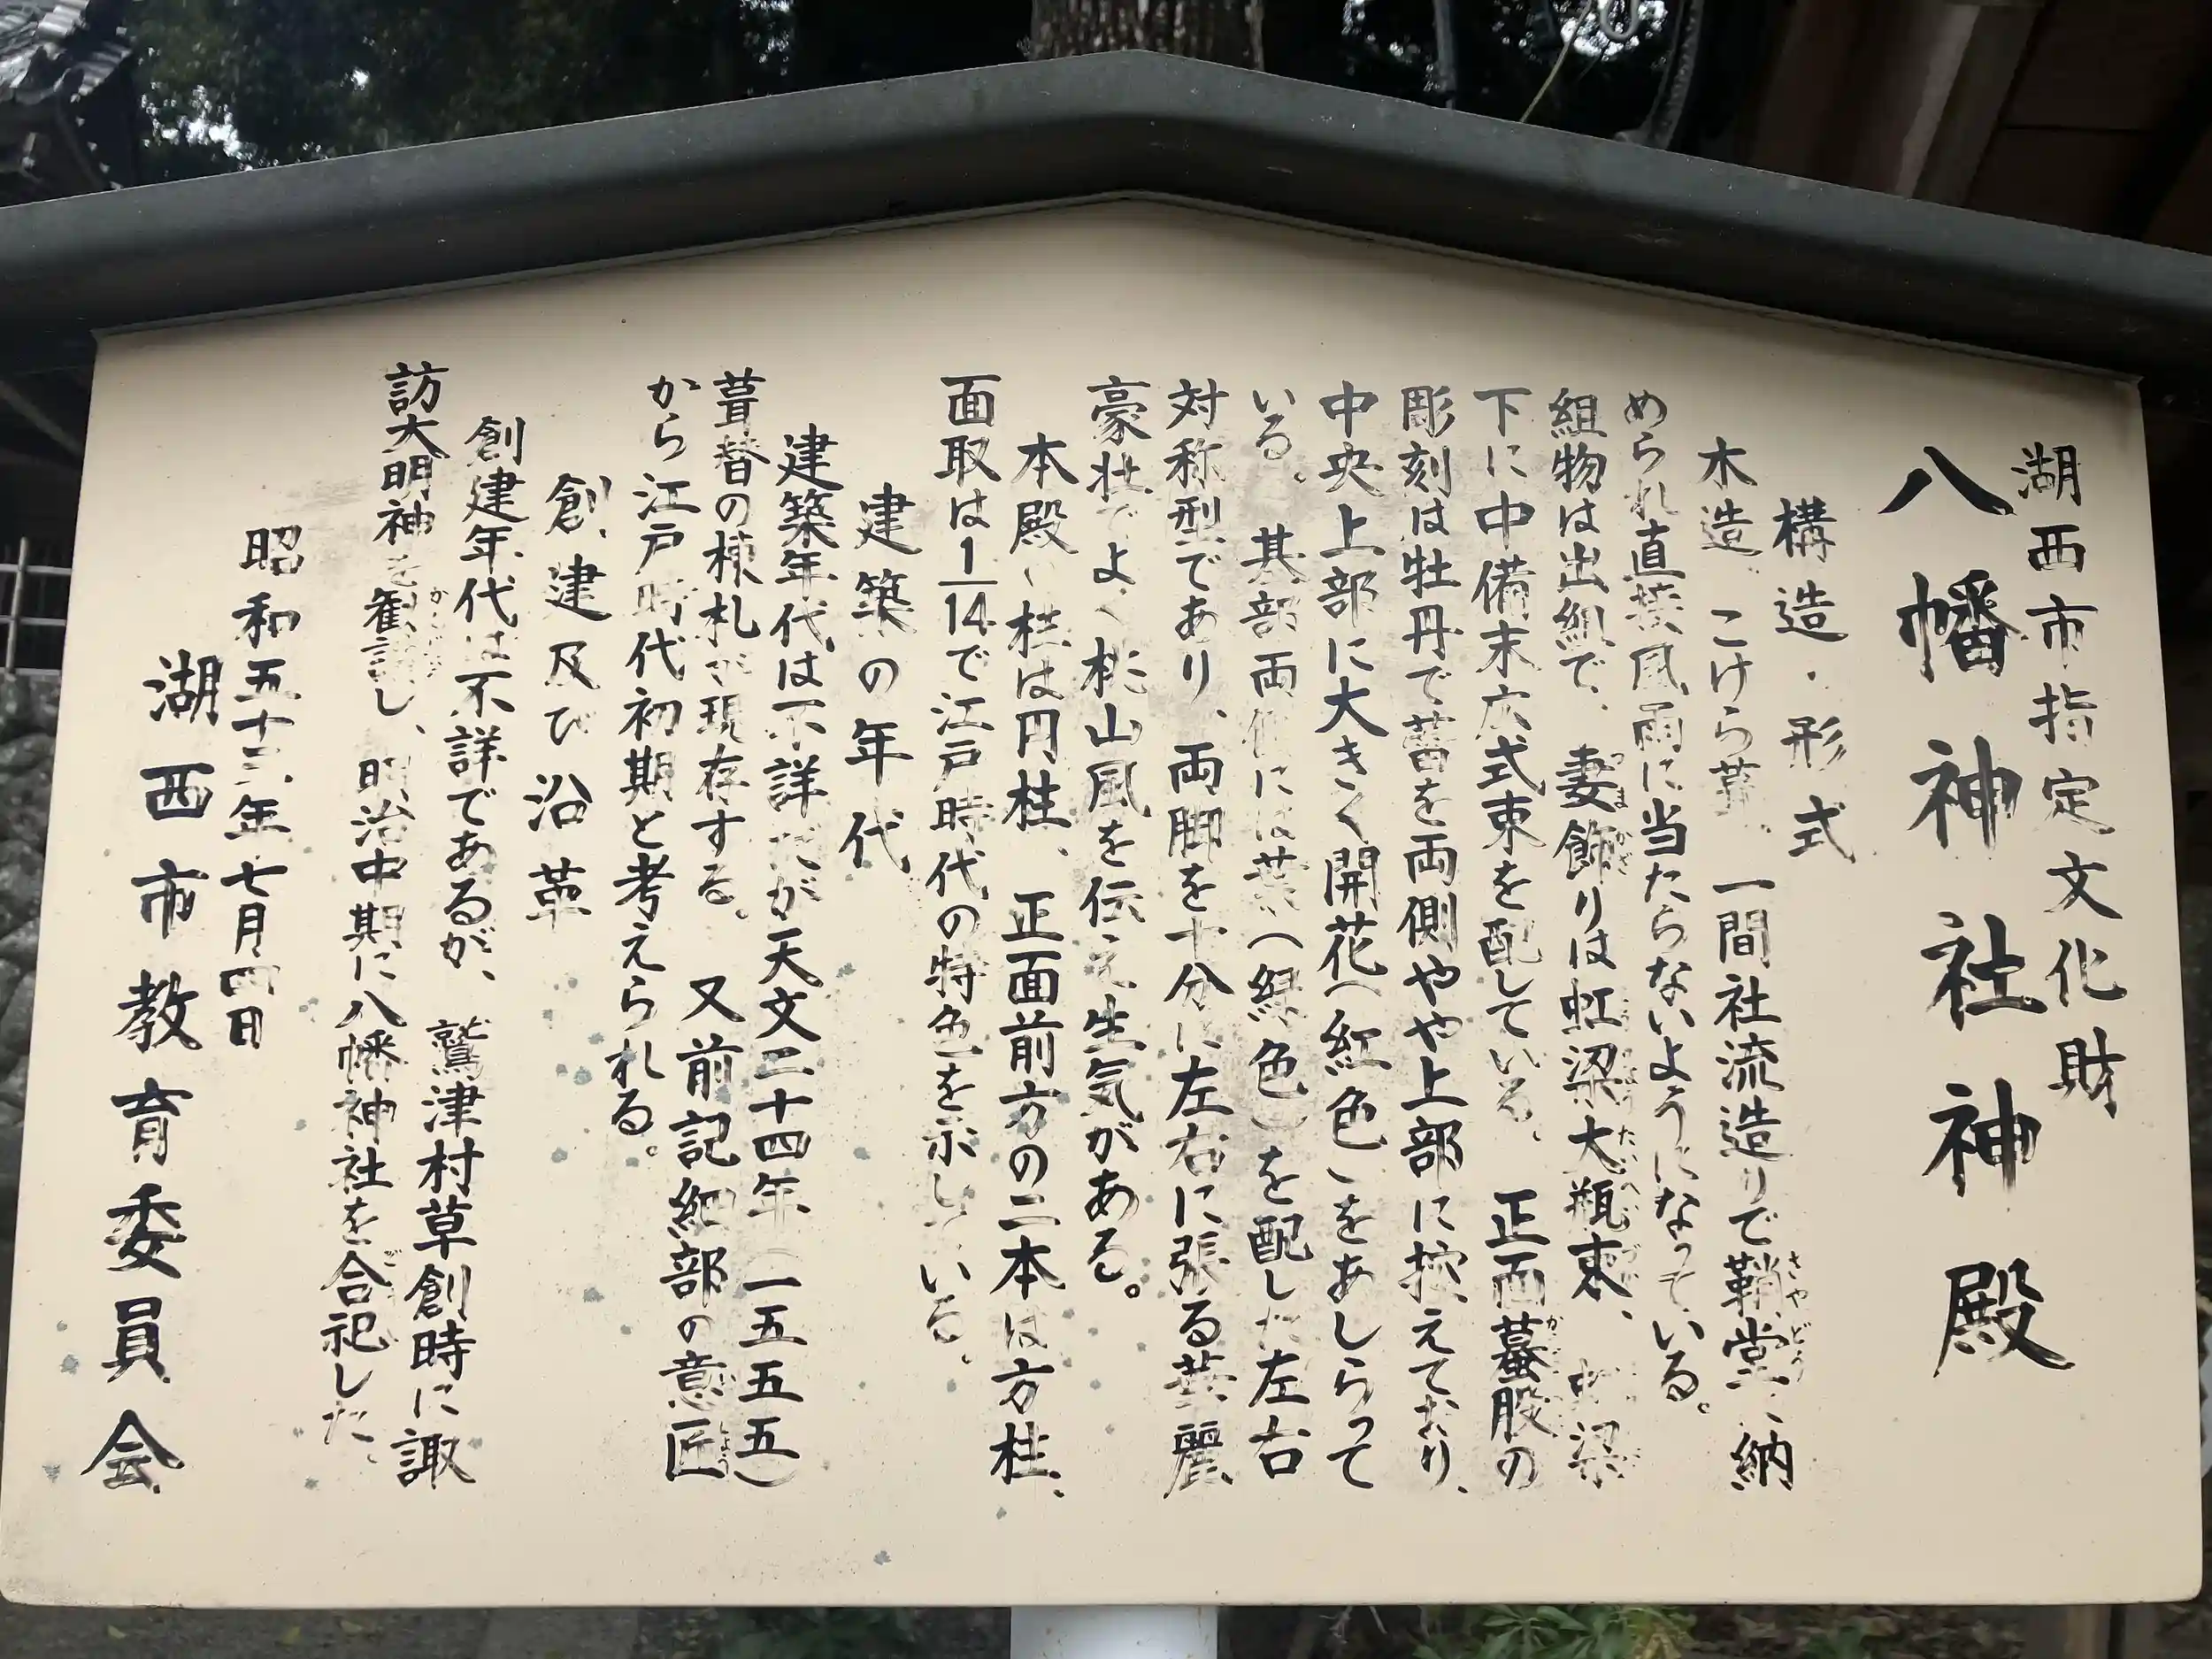 湖西市指定文化財
八幡神社神殿
構造・形式
木造、こけら葺、一間社流造りで鞘堂に納
さやどう
められ直接風雨に当たらないようになっている。
組物は出組で、妻飾りは虹梁大瓶束、虹梁
下に中備末広式束を配している。正面蟇股の
彫刻は牡丹で蕾を両側やや上部に控えており、
中央上部に大きく開花(紅色)をあしらって
いる。其部両側には葉(緑色)を配した左右
対称型であり、両脚を十分に左右に張る華麗
豪壮でよく桃山風を伝え生気がある。
本殿の柱は円柱、正面前方の二本は方柱、
面取は1/14で江戸時代の特色を示している。
建築の年代
建築年代は不詳だが天文二十四年(一五五五)
葺替の棟札が現存する。又前記細部の意匠
から江戸時代初期と考えられる。
創建及び沿革
創建年代は不詳であるが、鷲津村草創時に諏
訪大明神を勧請し、明治中期に八幡神社を合祀した。
昭和五十三年七月四日
湖西市教育委員会